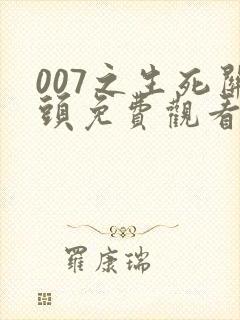 007之生死關
頭免費觀看
羅康瑞